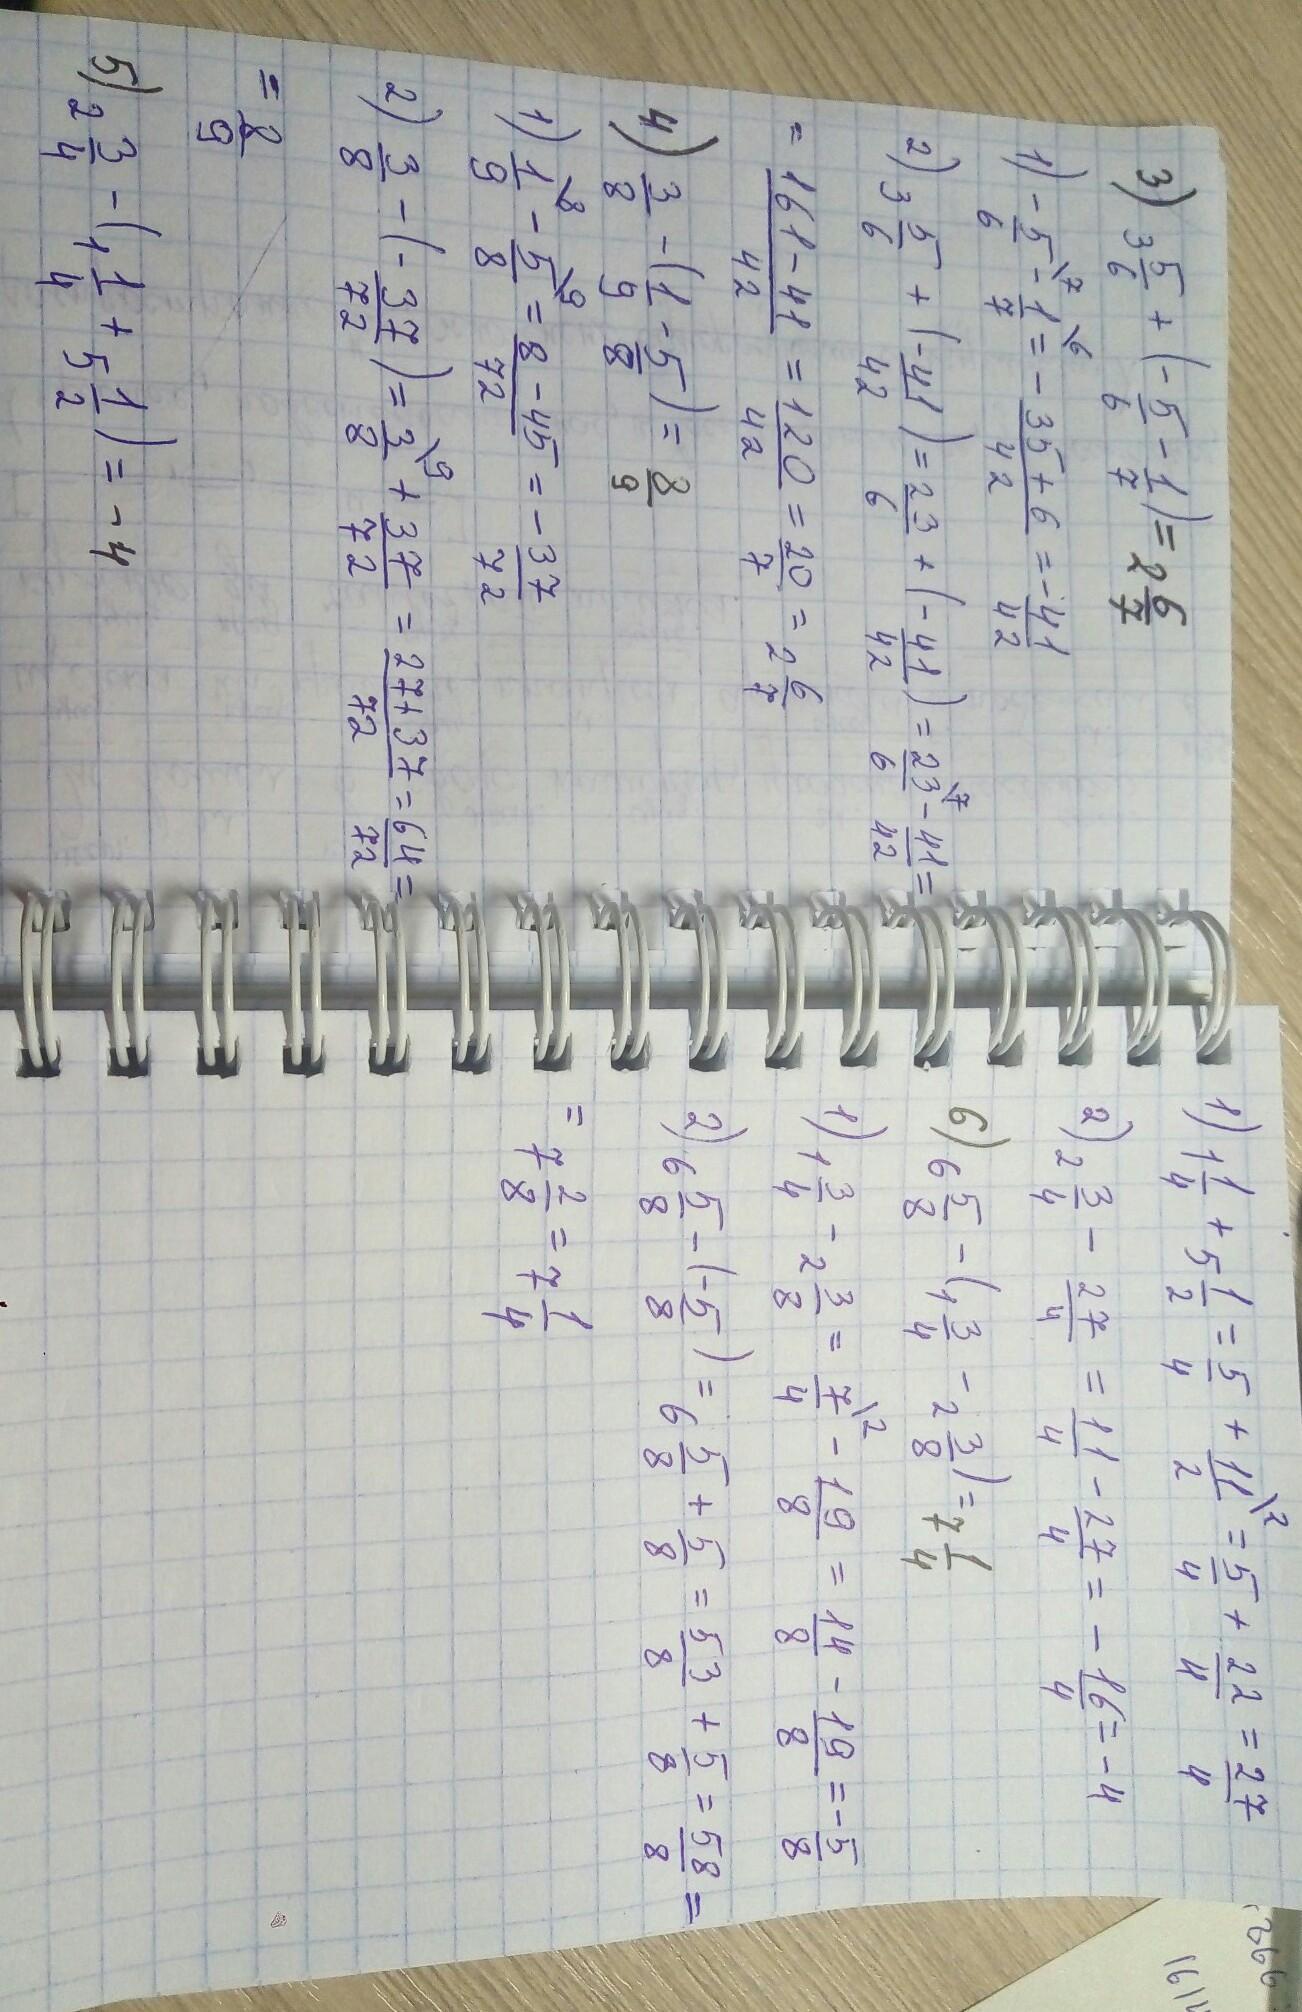 3) 3 5/6 + (- 5/6 - 1/7) = 2 6/7
1) - 5/6 \7 - 1/7 \6 = - 35+6/42 = - 41/42
2) 3 5/6 + (- 41/42) = 23/6 + (- 41/42) = 23/6 \7 - 41/42 =
= 161-41/42 = 120/42 = 20/7 = 2 6/7
4) 3/8 - (1/9 - 5/8) = 8/9
1) 1/9 \8 - 5/8 \9 = 8-45/72 = - 37/72
2) 3/8 - (- 37/72) = 3/8 \9 + 37/72 = 27+37/72 = 64/72 =
= 8/9
5) 2 3/4 - (1 1/4 + 5 1/2) = -4
1) 1 1/4 + 5 1/2 = 5/4 + 11/2 \2 = 5/4 + 22/4 = 27/4
2) 2 3/4 - 27/4 = 11/4 - 27/4 = - 16/4 = -4
6) 6 5/8 - (1 3/4 - 2 3/8) = 7 1/4
1) 1 3/4 - 2 3/8 = 7/4 \2 - 19/8 = 14/8 - 19/8 = - 5/8
2) 6 5/8 - (- 5/8) = 6 5/8 + 5/8 = 53/8 + 5/8 = 58/8 =
= 7 2/8 = 7 1/4